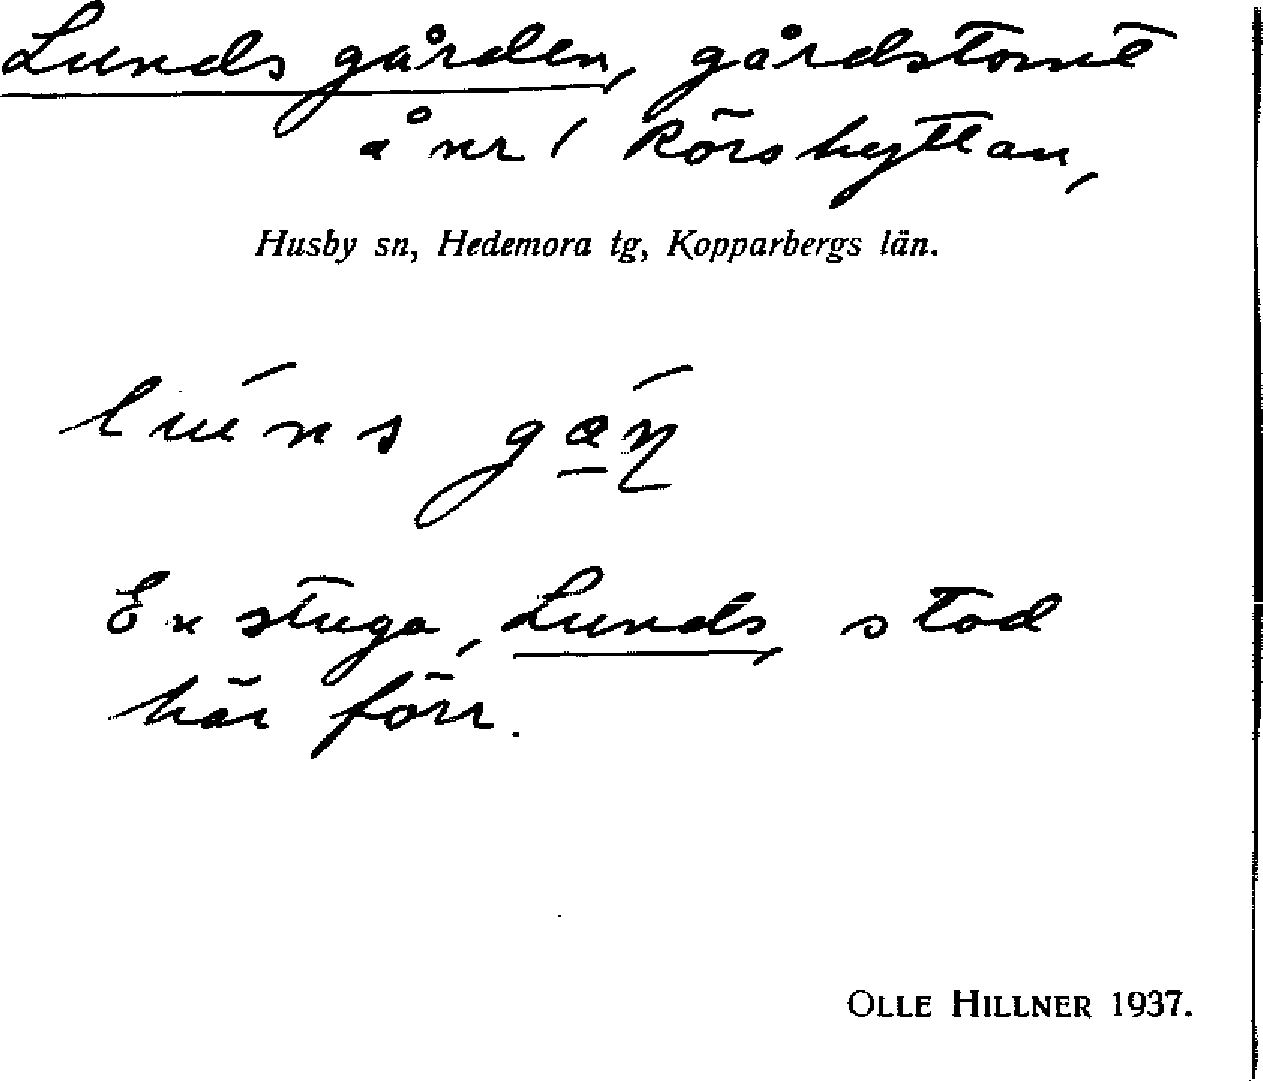 Lunds gården, gårdstomt
å nr 1 Rörshyttan,
Husby sn, Hedemora tg, Kopparbergs län.
En stuga, Lunds, stod
här förr.
OLLE HILLNER 1937.